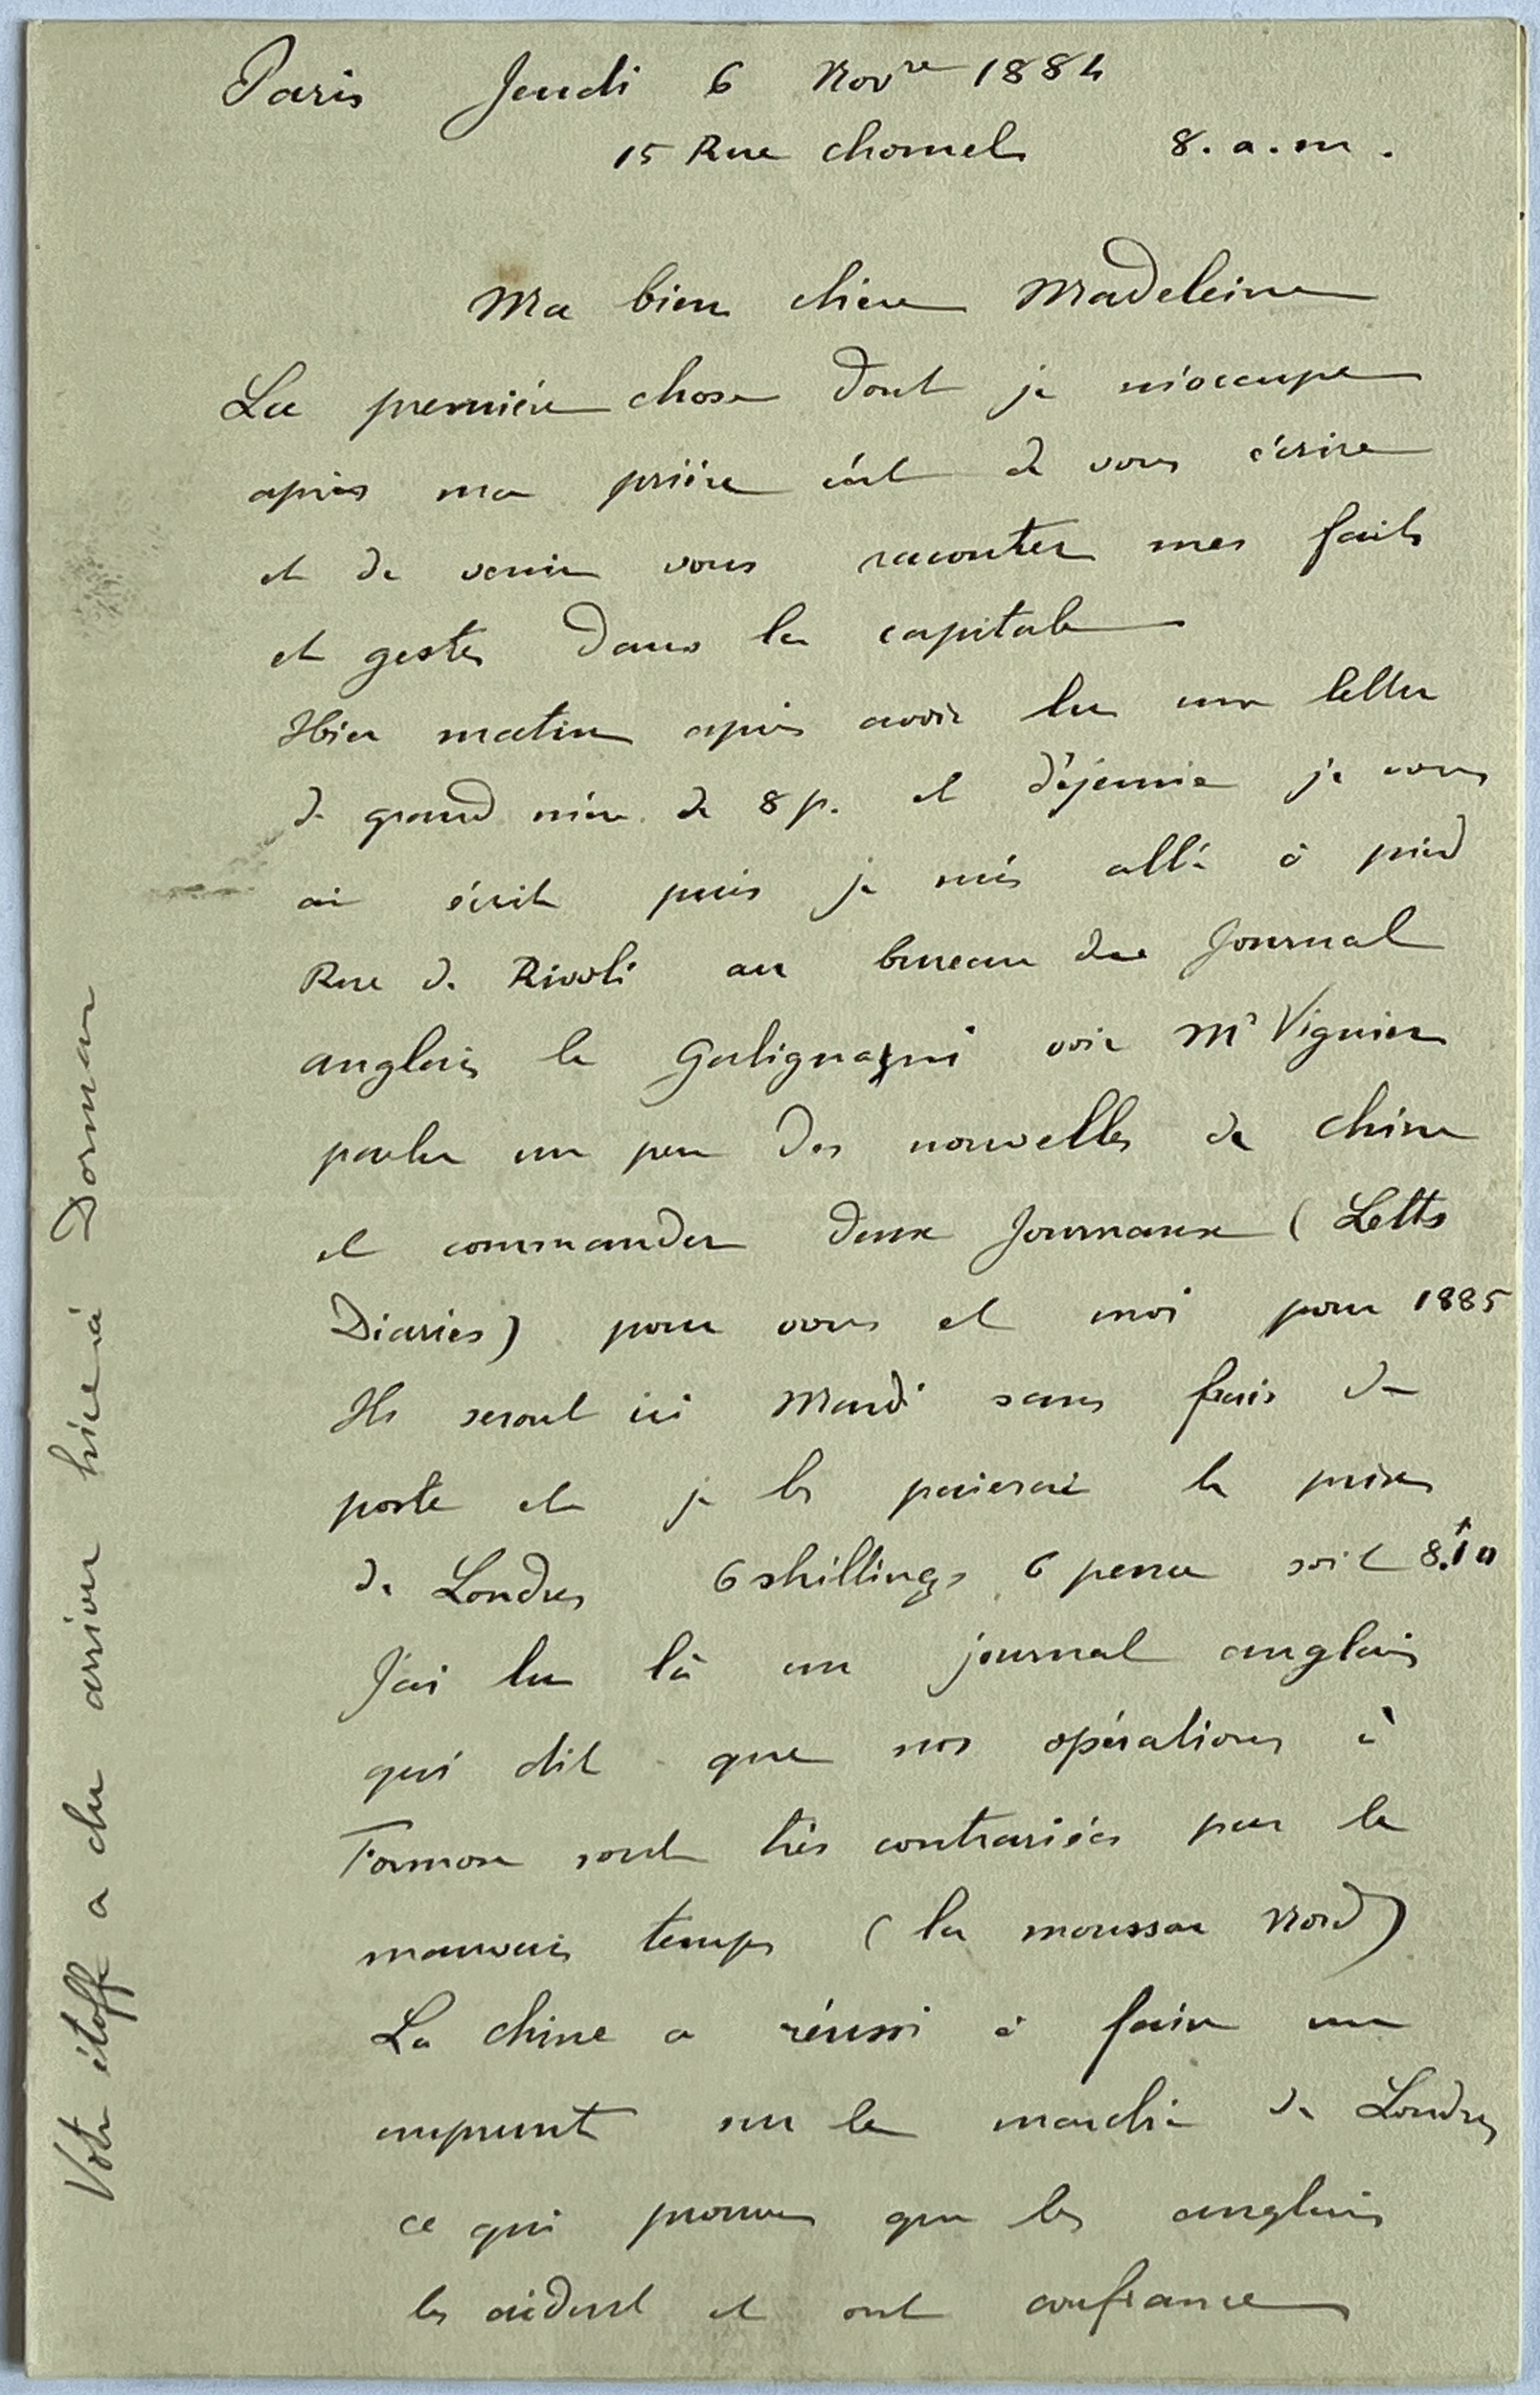 Paris Jeudi 6 Nov^re 1884
15 Rue Chomel 8. a.m.
Ma bien chère Madeleine
La première chose dont je m'occupe
après ma prière c'est de vous écrire
et de venir vous raconter mes faits
et gestes dans la capitale
Hier matin après avoir lu une lettre
de grand mère de 8 p. et déjeuné je vous
ai écrit puis je suis allé à pied
Rue de Rivoli au bureau du Journal
anglais le Galignani voir Mr Viguier
parler un peu des nouvelles de Chine
et commander deux Journaux (Letts
Diaries) pour vous et moi pour 1885
Ils seront ici Mardi sans frais de
poste et je les paierai le prix
de Londres 6 shillings 6 pence soit 8.f10
J'ai lu là un journal anglais
qui dit que nos opérations à
Formose sont très contrariées par le
mauvais temps (la mousson Nord)
La Chine a réussi à faire un
emprunt sur le marché de Londres
ce qui prouve que les anglais
les aident et ont confiance
Votre étoffe a du arriver hier à Dornan